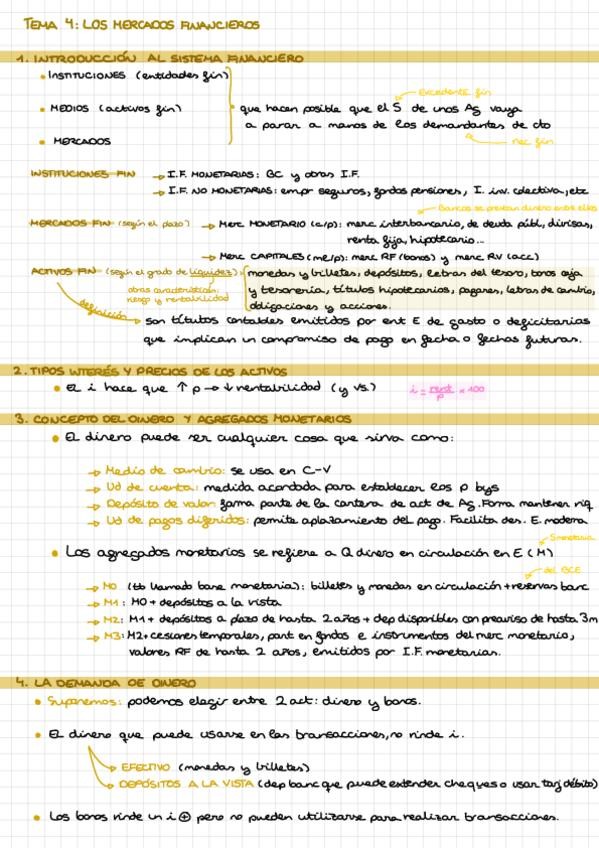 TEMA 4: LOS MERCADOS FINANCIEROS
1. INTRODUCCIÓN AL SISTEMA FINANCIERO
• INSTITUCIONES (entidades fin)
Excedente fin
• MEDIOS (activos fin)
que hacen posible que el S de unos Ag vaya
a parar a manos de los demandantes de cto
• MERCADOS
nec fin
INSTITUCIONES FIN → I.F. MONETARIAS: BC y otras I.F.
→ I.F. NO MONETARIAS: empr seguros, fondos pensiones, I. inv. colectiva, etc
Bancos se prestan dinero entre ellos
MERCADOS FIN (según el plazo) → Merc MONETARIO (c/p): merc interbancario, de deuda públ, divisas,
renta fija, hipotecario...
→ Merc CAPITALES (me/p): merc RF (bonos) y merc RV (acc)
ACTIVOS FIN (según el grado de liquidez): monedas y billetes, depósitos, letras del tesoro, bonos caja
otras características: y tesorería, títulos hipotecarios, pagares, letras de cambio,
riesgo y rentabilidad obligaciones y acciones.
definición → son títulos contables emitidos por ent E de gasto o deficitarias
que implican un compromiso de pago en fecha o fechas futuras.
2. TIPOS INTERÉS Y PRECIOS DE LOS ACTIVOS
• El i hace que ↑ p → ↓ rentabilidad (y vs.) i = rent/p × 100
3. CONCEPTO DEL DINERO Y AGREGADOS MONETARIOS
• El dinero puede ser cualquier cosa que sirva como:
→ Medio de cambio: se usa en C-V
→ Ud de cuenta: medida acordada para establecer los p bys
→ Depósito de valor: forma parte de la cartera de act de Ag. Forma mantener riq
→ Ud de pagos diferidos: permite aplazamiento del pago. Facilita des. E. moderna
S monetaria
• Los agregados monetarios se refiere a Q dinero en circulación en E (M)
del BCE
→ M0 (tb llamado base monetaria): billetes y monedas en circulación + reservas banc
→ M1: M0 + depósitos a la vista
→ M2: M1 + depósitos a plazo de hasta 2 años + dep disponibles con preaviso de hasta 3m
→ M3: M2 + cesiones temporales, part en fondos e instrumentos del merc monetario,
valores RF de hasta 2 años, emitidos por I.F. monetarias.
4. LA DEMANDA DE DINERO
• Suponemos: podemos elegir entre 2 act: dinero y bonos.
• El dinero que puede usarse en las transacciones, no rinde i.
→ EFECTIVO (monedas y billetes)
→ DEPÓSITOS A LA VISTA (dep banc que puede extender cheques o usar tarj débito)
• Los bonos rinde un i ⊕ pero no pueden utilizarse para realizar transacciones.